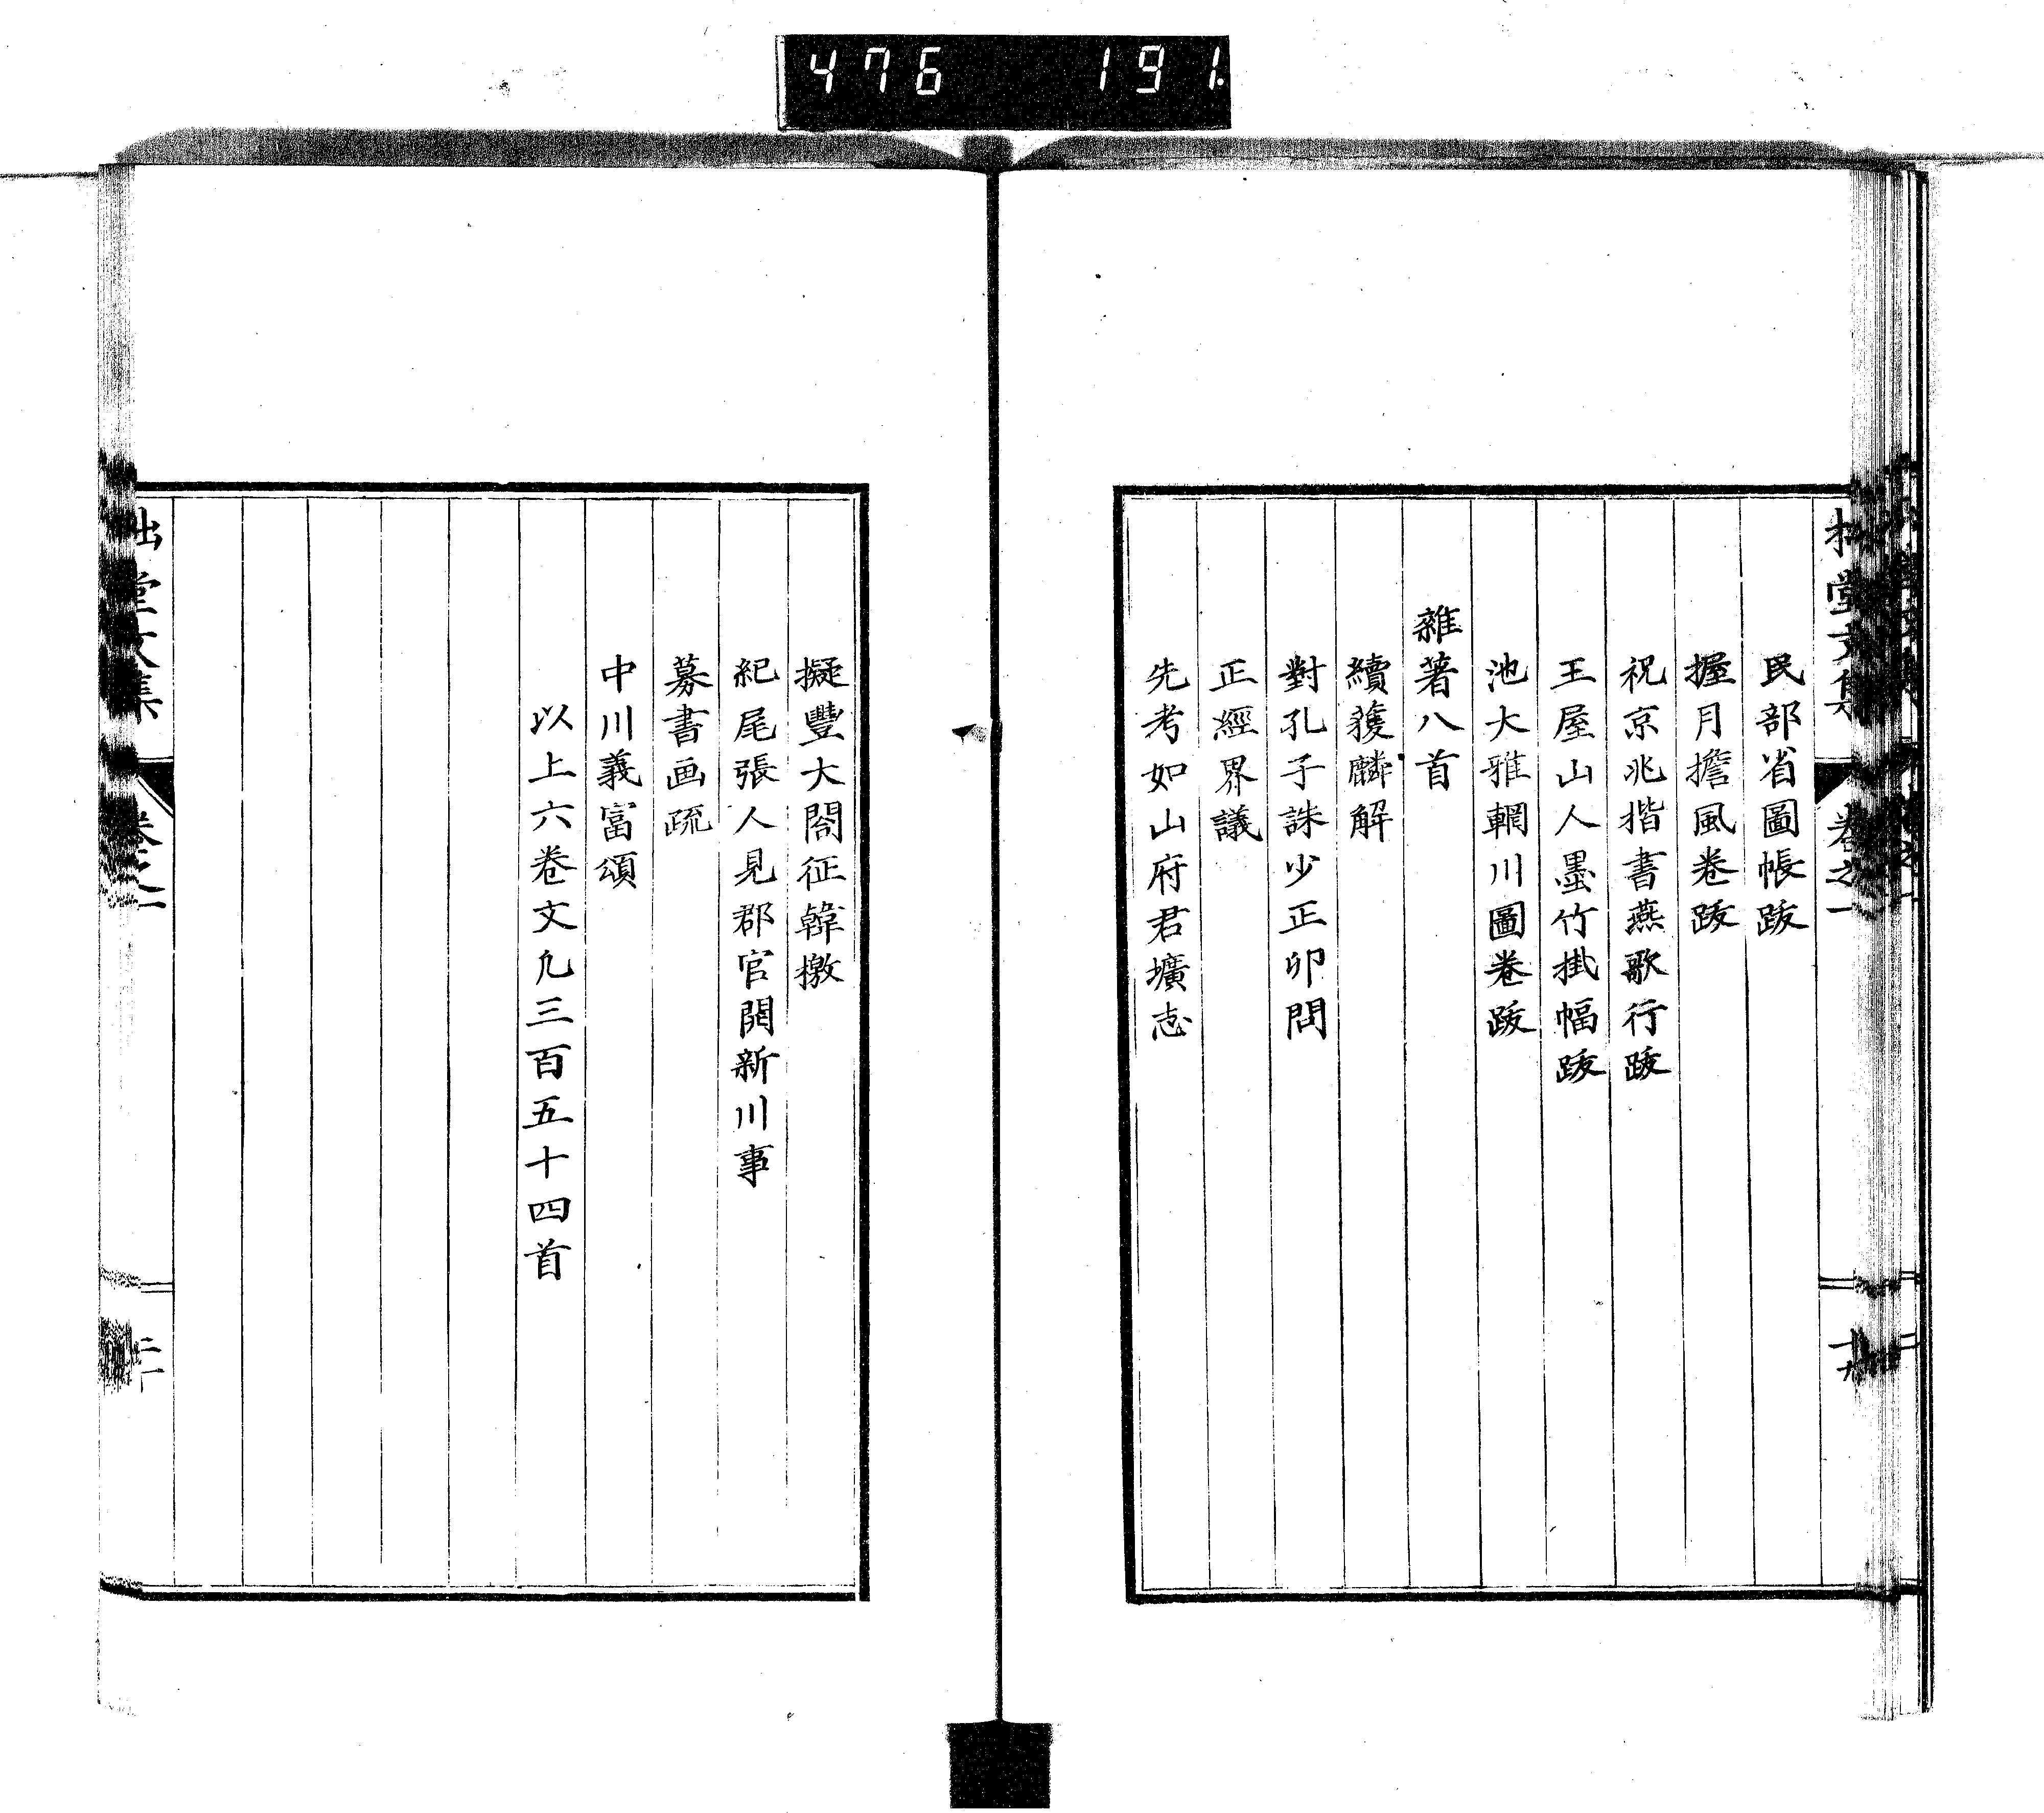 476 191.
拙堂文集 卷之一 十九
民部省圖帳跋
握月擔風卷跋
祝京兆揩書燕歌行跋
王屋山人墨竹掛幅跋
池大雅輞川圖卷跋
雜著八首
續獲麟解
對孔子誅少正卯問
正經界議
先考如山府君壙志
擬豐大閤征韓檄
紀尾張人見郡官開新川事
募書画疏
中川義富頌
以上六卷文凢三百五十四首
拙堂文集 卷之一